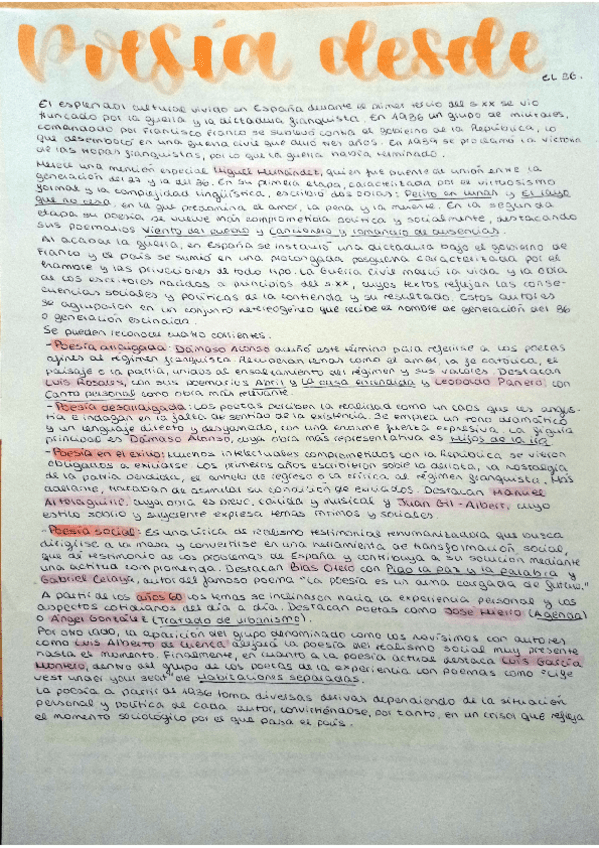 Poesía desde
EL 36.
El esplendor cultural vivido en España durante el primer tercio del s.XX se vio
truncado por la guerra y la dictadura franquista. En 1936 un grupo de militares,
comandado por Francisco Franco se sublevó contra el gobierno de la República, lo
que desembocó en una guerra civil que duró tres años. En 1939 se proclamó la victoria
de las tropas franquistas, por lo que la guerra había terminado.
Merece una mención especial Miguel Hernández, quien fue puente de unión entre la
generación del 27 y la del 36. En su primera etapa, caracterizada por el virtuosismo
formal y la complejidad lingüística, escribió dos obras: Perito en lunas y El rayo
que no cesa, en la que predomina el amor, la pena y la muerte. En la segunda
etapa su poesía se vuelve más comprometida política y socialmente, destacando
sus poemarios Viento del pueblo y Cancionero y romancero de ausencias.
Al acabar la guerra, en España se instauró una dictadura bajo el gobierno de
Franco y el país se sumió en una prolongada posguerra caracterizada por el
hambre y las privaciones de todo tipo. La Guerra Civil marcó la vida y la obra
de los escritores nacidos a principios del s.XX, cuyos textos reflejan las conse-
cuencias sociales y políticas de la contienda y su resultado. Estos autores
se agruparon en un conjunto heterogéneo que recibe el nombre de generación del 36
o generación escindida.
Se pueden reconocer cuatro corrientes.
- Poesía arraigada: Dámaso Alonso acuñó este término para referirse a los poetas
afines al régimen franquista. Abordan temas como el amor, la fe católica, el
paisaje o la patria, unidos al ensalzamiento del régimen y sus valores. Destacan
Luis Rosales, con sus poemarios Abril y La casa encendida y Leopoldo Panero, con
Canto personal como obra más relevante.
- Poesía desarraigada: Los poetas perciben la realidad como un caos que les angus-
tia e indagan en la falta de sentido de la existencia. Se emplea un tono dramático
y un lenguaje directo y desgarrado, con una enorme fuerza expresiva. La figura
principal es Dámaso Alonso, cuya obra más representativa es Hijos de la ira
- Poesía en el exilio: Muchos intelectuales comprometidos con la República se vieron
obligados a exiliarse. Los primeros años escribieron sobre la derrota, la nostalgia
de la patria perdida, el anhelo de regreso o la crítica al régimen franquista. Más
adelante, trataban de asimilar su condición de exiliados. Destacan Manuel
Altolaguirre, cuya obra es breve, cálida y musical y Juan Gil-Albert, cuyo
estilo sobrio y sugerente expresa temas íntimos y sociales.
- Poesía social: Es una lírica de realismo testimonial rehumanizadora que busca
dirigirse a la masa y convertirse en una herramienta de transformación social,
que dé testimonio de los problemas de España y contribuya a su solución mediante
una actitud comprometida. Destacan Blas Otero con Pido la paz y la palabra y
Gabriel Celaya, autor del famoso poema "La poesía es un arma cargada de futuro."
A partir de los años 60 los temas se inclinaron hacia la experiencia personal y los
aspectos cotidianos del día a día. Destacan poetas como José Hierro (Agenda)
o Ángel González (Tratado de urbanismo).
Por otro lado, la aparición del grupo denominado como los novísimos con autores
como Luis Alberto de Cuenca alejará la poesía del realismo social muy presente
hasta es momento. Finalmente, en cuanto a la poesía actual destaca Luis García
Montero, dentro del grupo de los poetas de la experiencia con poemas como "Life
vest under your seat" de Habitaciones separadas.
La poesía a partir de 1936 toma diversas derivas dependiendo de la situación
personal y política de cada autor, convirtiéndose, por tanto, en un crisol que refleja
el momento sociológico por el que pasa el país.